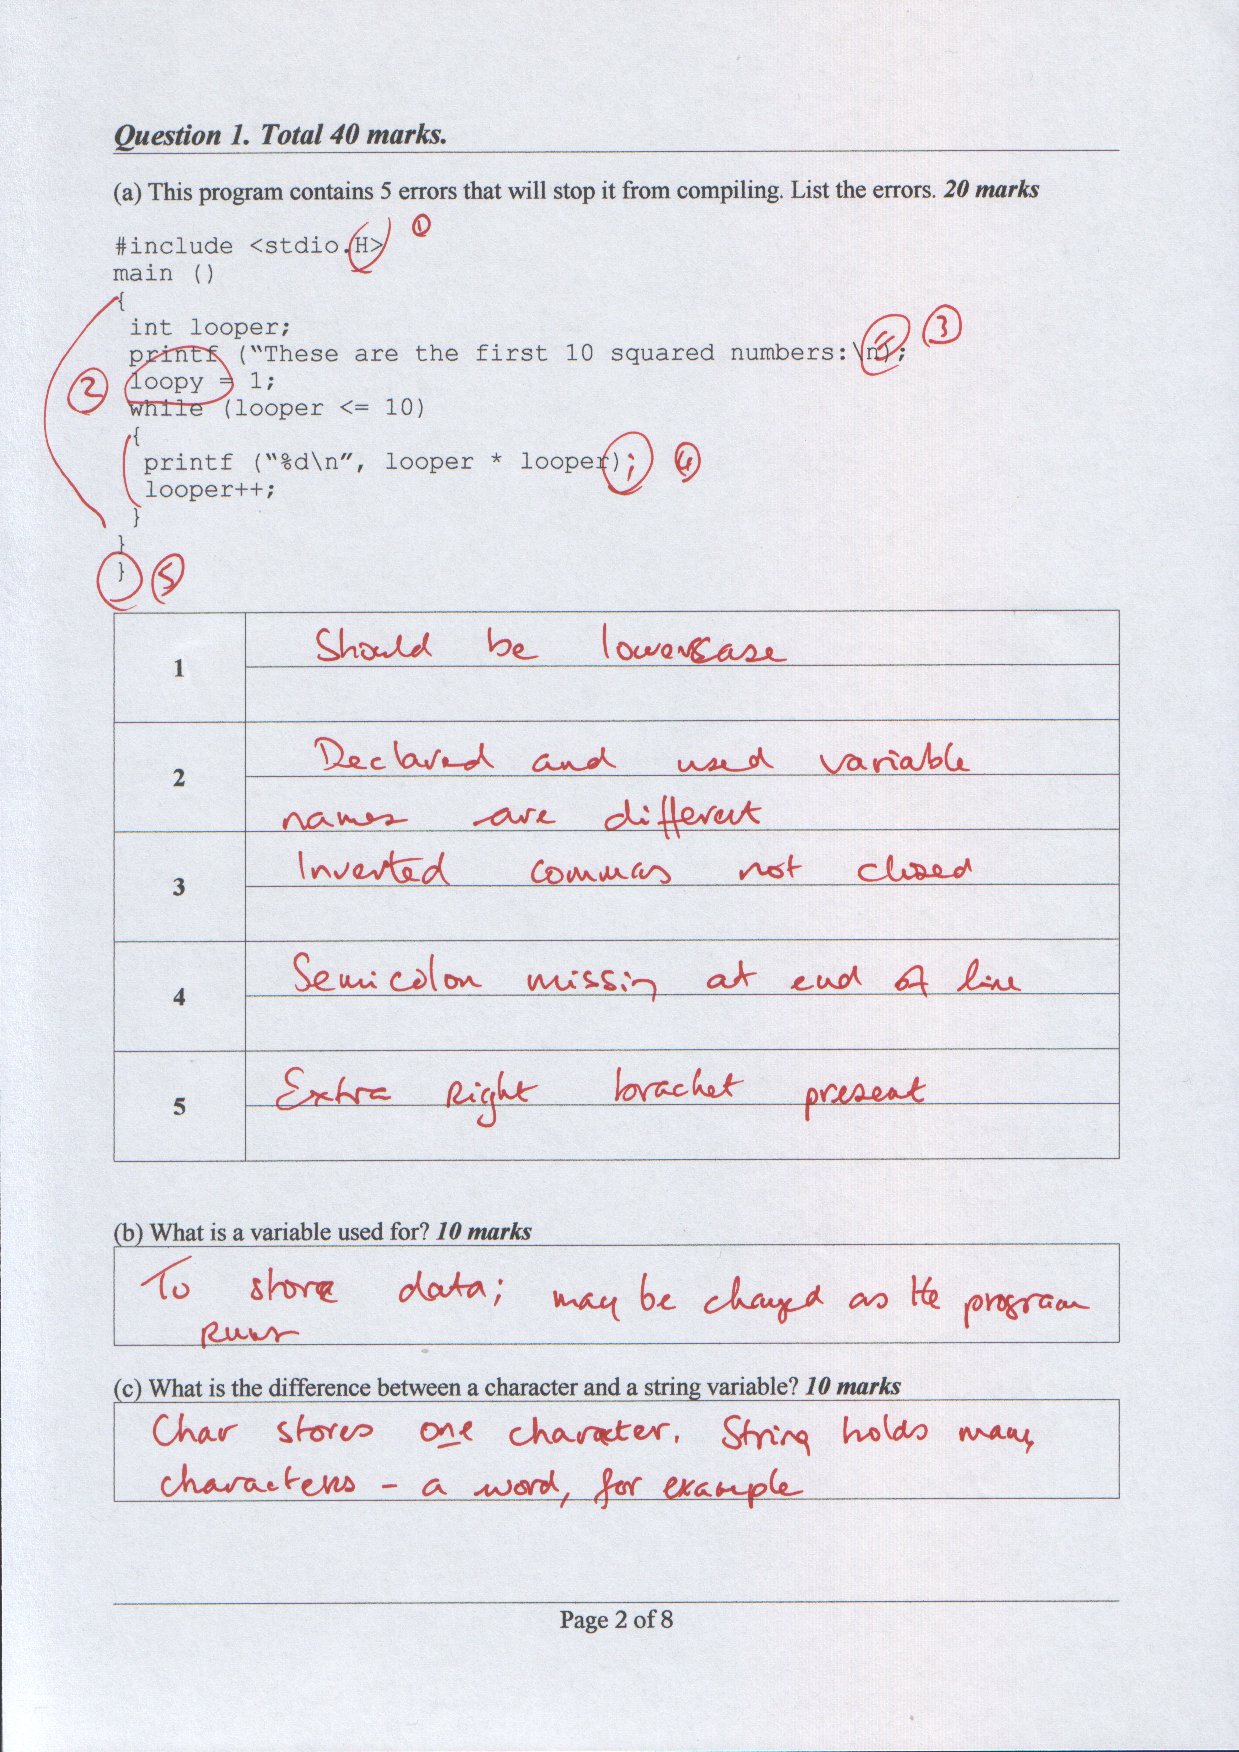 Question 1. Total 40 marks.
(a) This program contains 5 errors that will stop it from compiling. List the errors. 20 marks
#include <stdio.H> ①
main ()
{
int looper;
printf (“These are the first 10 squared numbers:\n”); ③
② loopy = 1;
while (looper <= 10)
{
printf (“%d\n”, looper * looper); ④
looper++;
}
}
} ⑤
1 Should be lowercase
2 Declared and used variable
names are different
3 Inverted commas not closed
4 Semicolon missing at end of line
5 Extra Right bracket present
(b) What is a variable used for? 10 marks
To store data; may be changed as the program
runs
(c) What is the difference between a character and a string variable? 10 marks
Char stores one character. String holds many
characters - a word, for example
Page 2 of 8